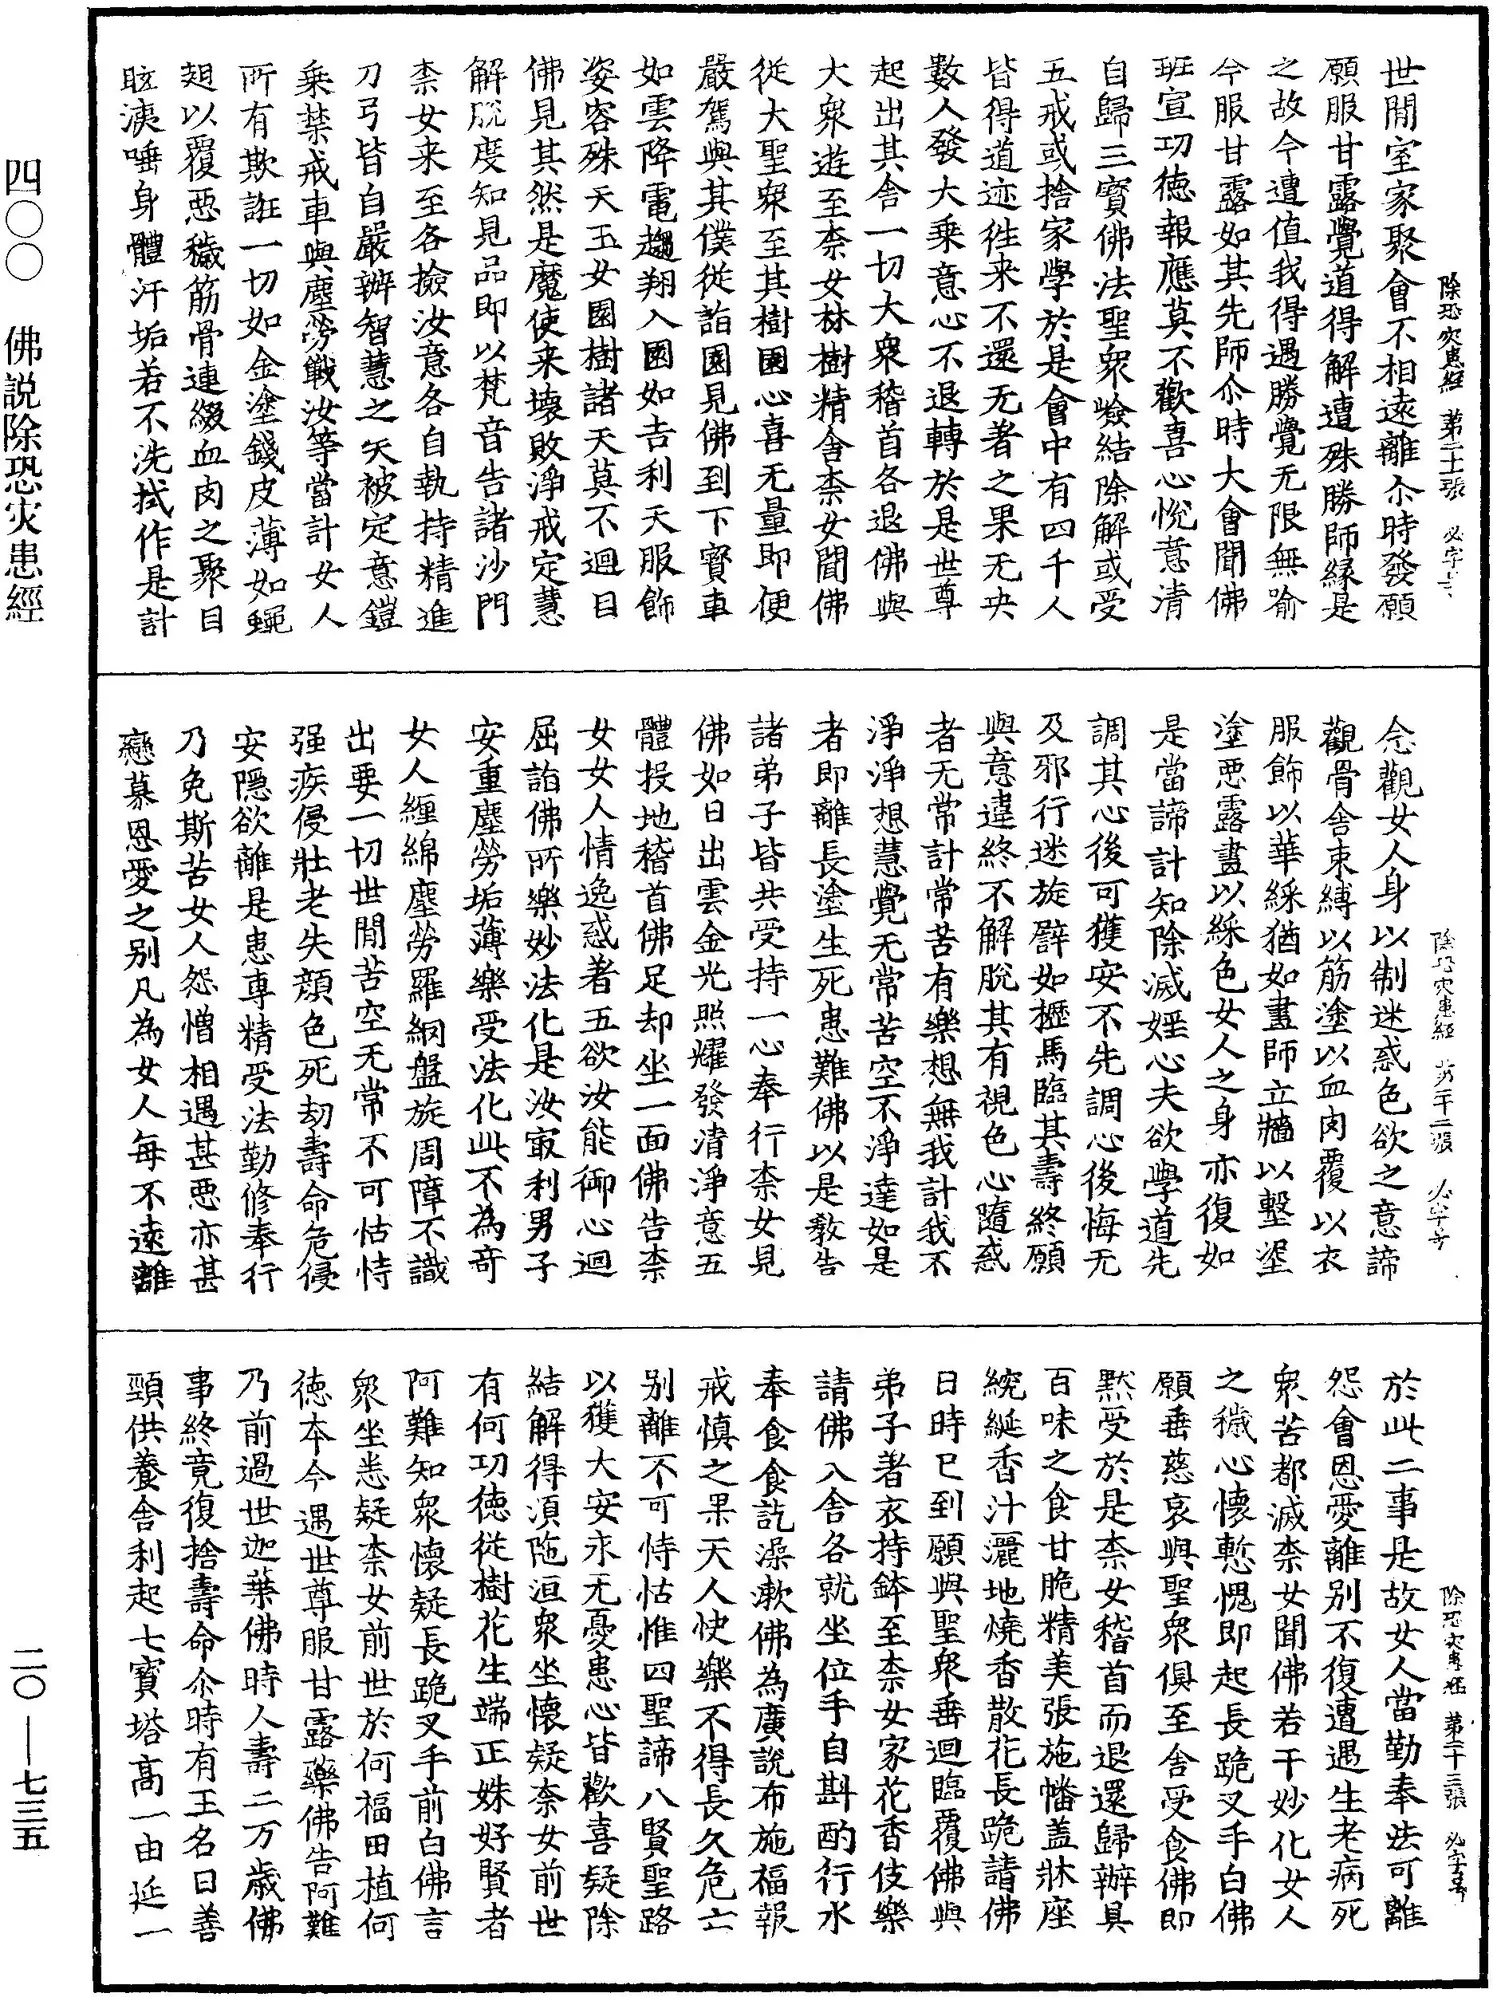 四〇〇　佛説除恐灾患經
二〇—七三五
除恐灾患經　第二十一張　必字
世間室家聚會不相遠離尒時發願
願服甘露覺道得解遭殊勝師緣是
之故今遭值我得遇勝覺无限無喻
今服甘露如其先師尒時大會聞佛
班宣功德報應莫不歡喜心悅意清
自歸三寶佛法聖衆嶮結除解或受
五戒或捨家學於是會中有四千人
皆得道迹往来不還无著之果无央
數人發大乘意心不退轉於是世尊
起出其舍一切大衆稽首各退佛與
大衆遊至柰女林樹精舍柰女聞佛
從大聖衆至其樹園心喜无量即便
嚴駕與其僕從詣園見佛到下寶車
如雲降電趨翔入園如吉利天服飾
姿容殊天玉女園樹諸天莫不迴目
佛見其然是魔使来壞敗淨戒定慧
解脫度知見品即以梵音告諸沙門
柰女来至各撿汝意各自執持精進
刀弓皆自嚴辦智慧之矢被定意鎧
乘禁戒車與塵勞戰汝等當計女人
所有欺誑一切如金塗錢皮薄如蠅
翅以覆惡穢筋骨連綴血肉之聚目
眵洟唾身體汗垢若不洗拭作是計
除恐灾患經　第二十二張　必字
念觀女人身以制迷惑色欲之意諦
觀骨舍束縛以筋塗以血肉覆以衣
服飾以華綵猶如畫師立牆以墼埿
塗惡露畫以綵色女人之身亦復如
是當諦計知除滅婬心夫欲學道先
調其心後可獲安不先調心後悔无
及邪行迷旋譬如櫪馬臨其壽終願
與意違終不解脫其有視色心隨惑
者无常計常苦有樂想無我計我不
淨淨想慧覺无常苦空不淨達如是
者即離長塗生死患難佛以是教告
諸弟子皆共受持一心奉行柰女見
佛如日出雲金光照耀發清淨意五
體投地稽首佛足却坐一面佛告柰
女女人情逸惑著五欲汝能御心迴
屈詣佛所樂妙法化是汝㝡利男子
安重塵勞垢薄樂受法化此不為奇
女人纏綿塵勞羅網盤旋周障不識
出要一切世間苦空无常不可怙恃
强疾侵壯老失顔色死劫壽命危侵
安隱欲離是患專精受法勤修奉行
乃免斯苦女人怨憎相遇甚惡亦甚
戀慕恩愛之别凡為女人每不遠離
除恐灾患經　第二十三張　必字
於此二事是故女人當勤奉法可離
怨會恩愛離别不復遭遇生老病死
衆苦都滅柰女聞佛若干妙化女人
之穢心懷慙愧即起長跪叉手白佛
願垂慈哀與聖衆俱至舍受食佛即
默受於是柰女稽首而退還歸辦具
百味之食甘脆精美張施幡盖牀座
綩綖香汁灑地燒香散花長跪請佛
日時已到願與聖衆垂迴臨覆佛與
弟子著衣持鉢至柰女家花香伎樂
請佛入舍各就坐位手自斟酌行水
奉食食訖澡漱佛為廣說布施福報
戒慎之果天人快樂不得長久危亡
别離不可恃怙惟四聖諦八賢聖路
以獲大安永无憂患心皆歡喜疑除
結解得湏陁洹衆坐懷疑柰女前世
有何功德從樹花生端正姝好賢者
阿難知衆懷疑長跪叉手前白佛言
衆坐悉疑柰女前世於何福田植何
德本今遇世尊服甘露藥佛告阿難
乃前過世迦葉佛時人壽二万歲佛
事終竟復捨壽命尒時有王名曰善
頸供養舍利起七寶塔高一由延一